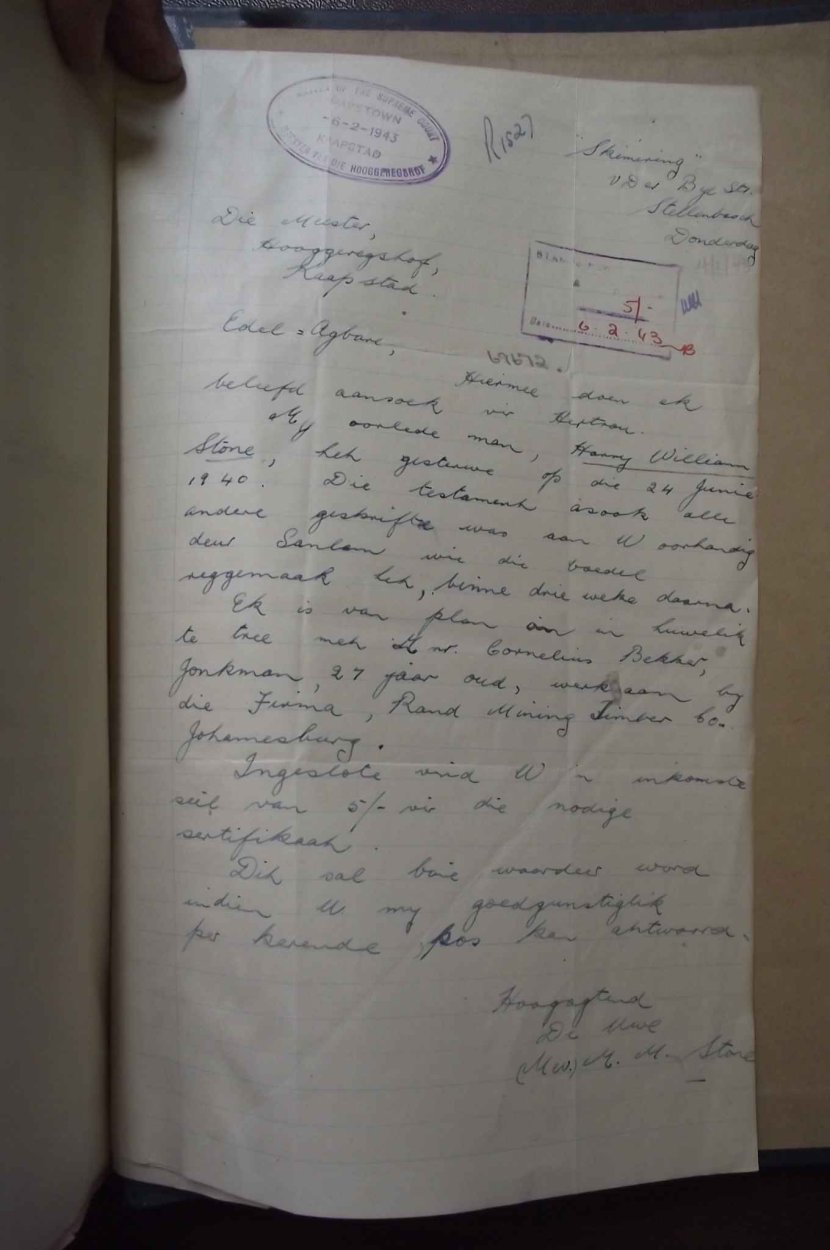 MASTER OF THE SUPREME COURT
CAPETOWN
-6-2-1943
KAAPSTAD
MEESTER VAN DIE HOOGGEREGSHOF
R1527
"Skemering"
v Der Byl Str.
Stellenbosch
Donderdag
Die Meester,
Hooggeregshof,
Kaapstad.
5/-
Date 6.2.43
Edel-Agbare,
Hiermee doen ek
beleefd aansoek vir Hertrou.
My oorlede man, Harry William
Stone, het gesterwe op die 24 Junie
1940. Die testament asook alle
andere geskrifte was aan U oorhandig
deur Sanlam wie die boedel
reggemaak het, binne drie weke daarna.
Ek is van plan om in huwelik
te tree met Mnr. Cornelius Bekker,
Jonkman, 27 jaar oud, werksaam by
die Firma, Rand Mining Timber Co.
Johannesburg.
Ingeslote vind U 'n inkomste
seël van 5/- vir die nodige
sertifikaat.
Dit sal baie waardeer word
indien U my goedgunstiglik
per kerende pos kan antwoord.
Hoogagtend
Die Uwe
(Mev.) M. M. Stone